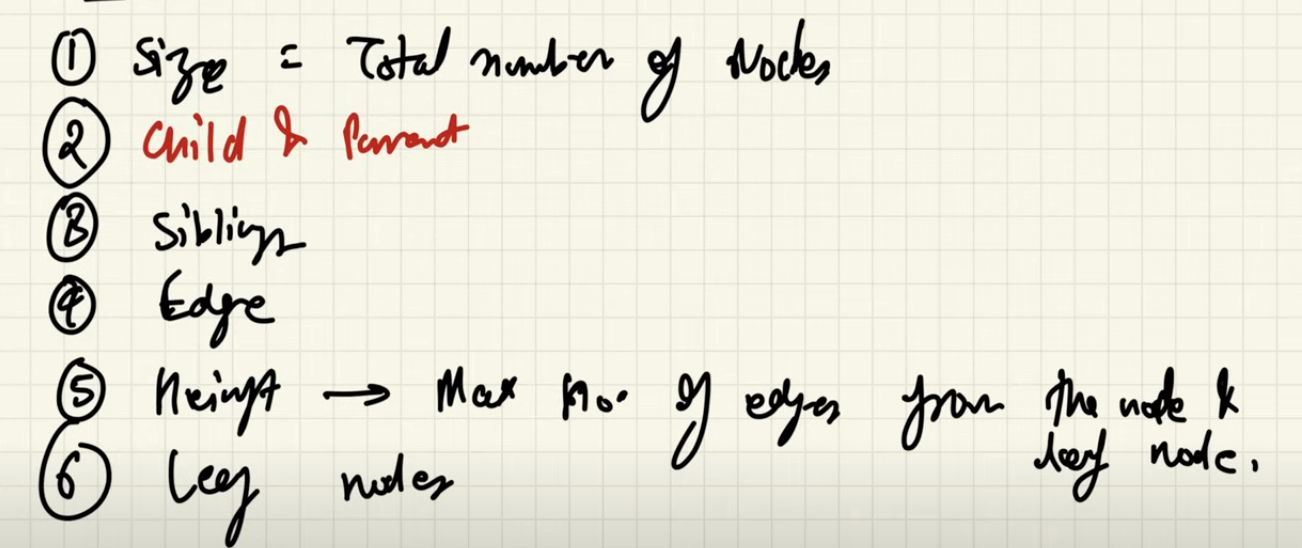 ① Size = Total number of Nodes
② Child & Parent
③ Siblings
④ Edge
⑤ Height → Max no. of edges from the node &
leaf node.
⑥ Leaf nodes